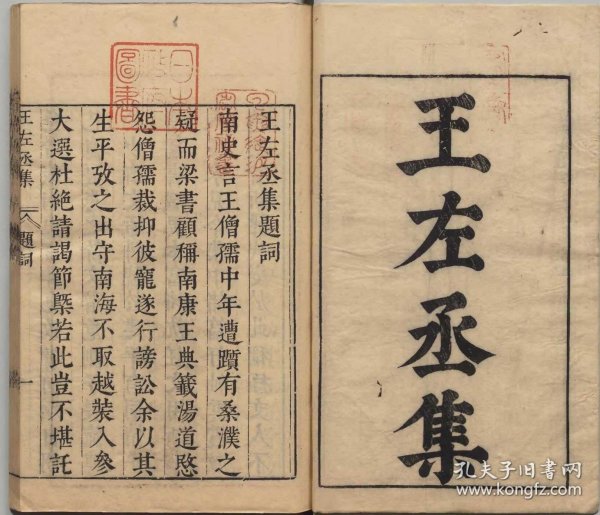 王左丞集
王左丞集題詞
南史言王僧孺中年遭躓有桑濮之
疑而梁書顧稱南康王典籤湯道愍
怨僧孺裁抑彼寵遂行謗訟余以其
生平攷之出守南海不取越裝入參
大選杜絶請謁節槩若此豈不堪託
王左丞集
題詞
一
孔夫子旧书网
www.kongfz.com